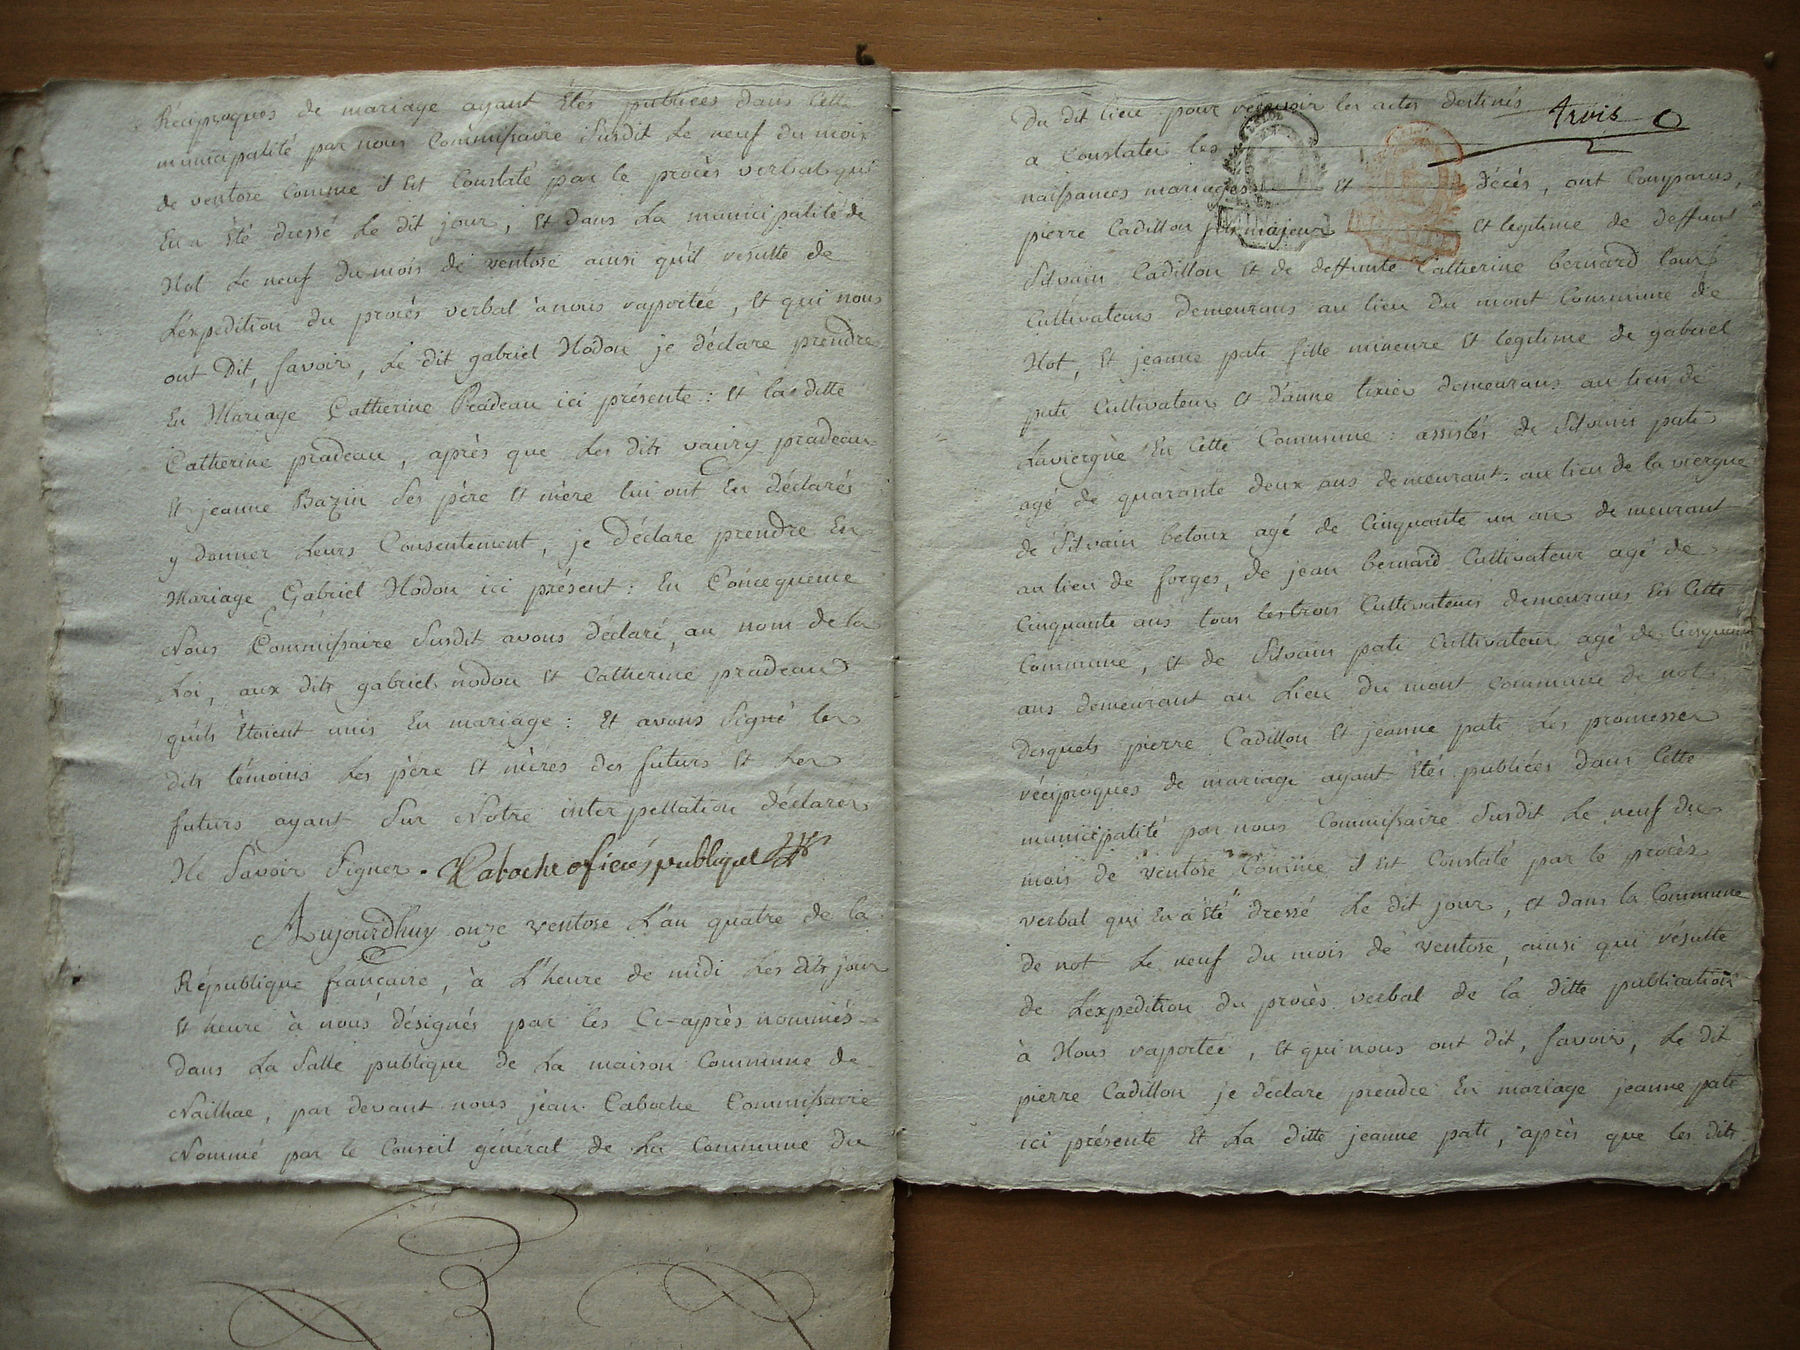 Réciproques de mariage ayant Étés publiées dans Cette
municipalité par nous Commissaire Susdit Le neuf du mois
de ventose Comme il Est Constaté par le procès verbal qui
En a Été dressé Le dit jour, Et dans La municipalité de
Not Le neuf du mois de ventose ainsi qu'il résulte de
L'expedition du procès verbal à nous raportée, Et qui nous
ont Dit, savoir, Le dit gabriel Nodon je déclare prendre
En Mariage Catherine Pradeau ici présente : Et la ditte
Catherine pradeau, après que Les dits vaury pradeau
Et jeanne Bazin Ses père Et mère lui ont En déclarés
y donner Leurs Consentement, je Déclare prendre En
Mariage Gabriel Nodon ici présent : En Concequence
Nous Commissaire Susdit avons déclaré, au nom de la
Loi, aux dits gabriel nodon Et Catherine pradeau
qu'ils Étoient unis En mariage : Et avons Signé les
dits témoins Les père Et mères des futurs Et Les
futurs ayant Sur Notre interpellation déclarés
Ne Savoir Signer. Caboche oficiés publique
Aujourdhuy onze ventose L'an quatre de la
République française, à L'heure de midi Les dits jour
Et heure à nous désignés par les Ci-après nommés
dans La Salle publique de La maison Commune de
Nailhac, par devant nous jean Caboche Commissaire
Nommé par le Conseil général de La Commune du
3
trois
Du dit lieu pour recevoir les actes destinés
a Constater les
naissances mariages Et Décès, ont Comparus,
pierre Cadillon fils majeur Et legitime de deffunt
Silvain Cadillon Et de deffunte Catherine bernard
Cultivateurs demeurans au lieu du mont Commune de
Not, Et jeanne pati fille mineure Et legitime de gabriel
pati Cultivateur Et d'anne tixier demeurans au lieu de
Lavierğne En Cette Commune : assistés de Silvain pati
agé de quarante deux ans demeurant au lieu de la viergne
de Silvain betoux agé de Cinquante un an demeurant
au lieu de forges, de jean bernard Cultivateur agé de
Cinquante ans tous les trois Cultivateurs demeurans En Cette
Commune, Et de Silvain pati Cultivateur agé de Cinquante
ans demeurant au Lieu du mont Commune de not
Desquels pierre Cadillon Et jeanne pati Les promesses
réciproques de mariage ayant Étés publiées Dans Cette
municipalité par nous Commissaire Susdit Le neuf du
mois de ventose Comme il Est Constaté par le procès
verbal qui En a Été dressé Le dit jour, Et dans la Commune
de not Le neuf du mois de ventose, ainsi qui résulte
de L'expedition du procès verbal de la ditte publication
à Nous raportée, Et qui nous ont dit, savoir, Le dit
pierre Cadillon je déclare prendre En mariage jeanne pati
ici présente Et La ditte jeanne pati, après que les dits